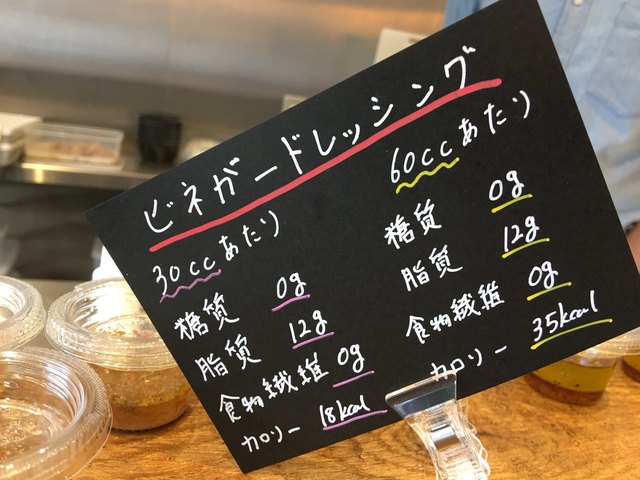 ビネガードレッシング
30ccあたり
糖質 0g
脂質 12g
食物繊維 0g
カロリー 18kcal
60ccあたり
糖質 0g
脂質 12g
食物繊維 0g
カロリー 35kcal